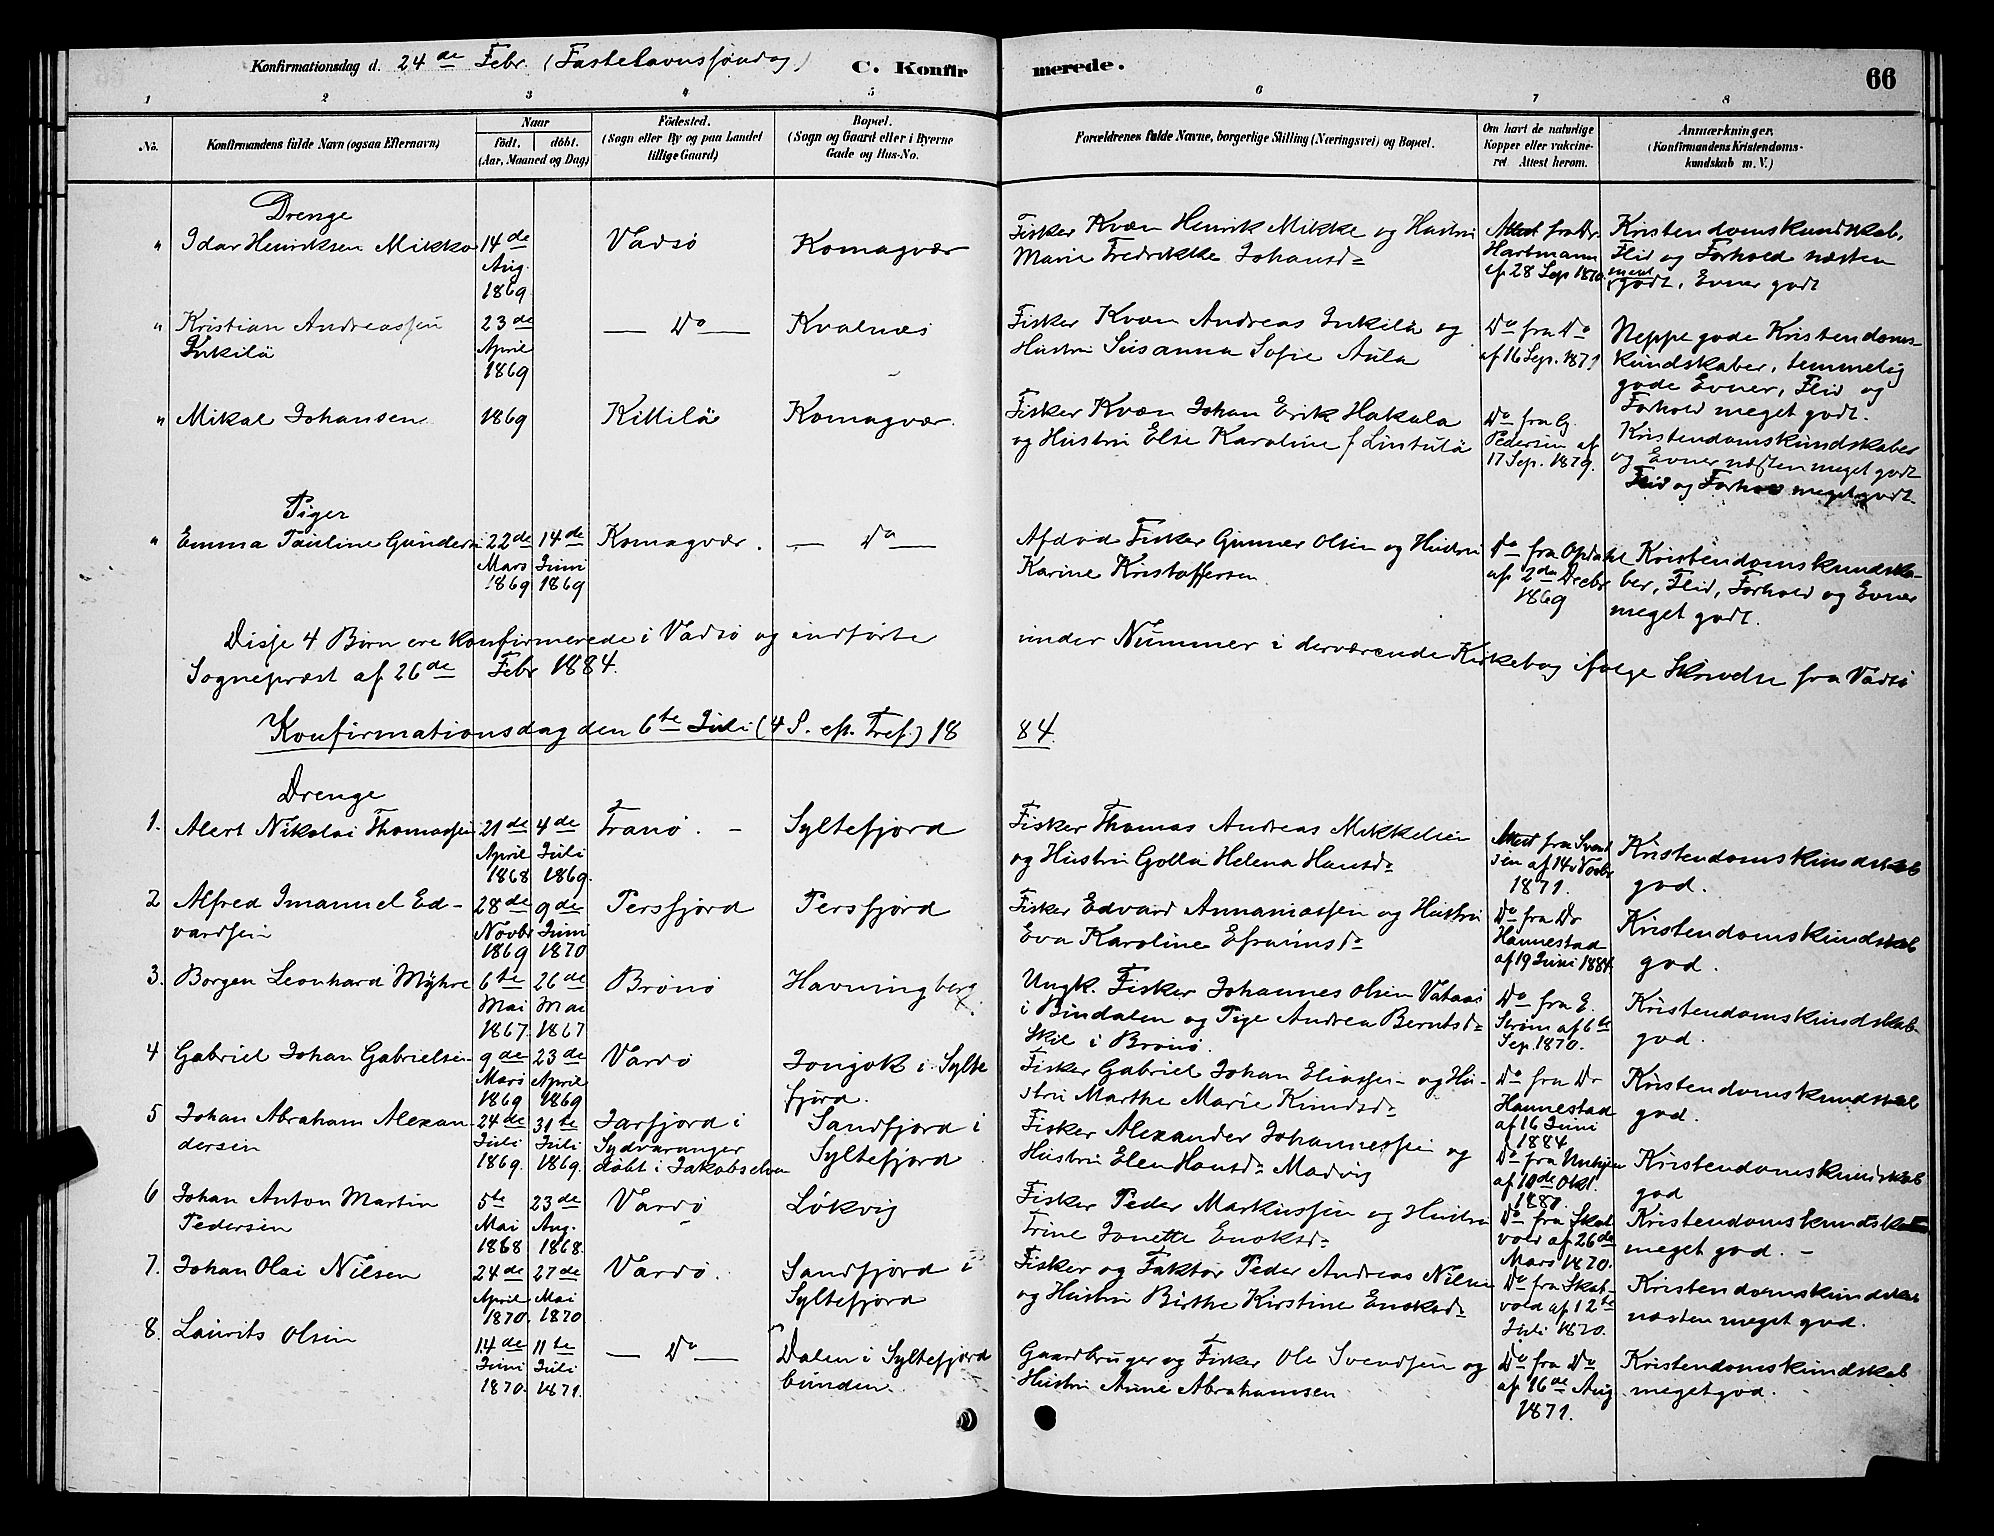 Konfirmationsdag d. 24de Febr (Fastelavnssøndag) C. Konfirmerede. 66
1 2 3 4 5 6 7 8
No. Konfirmandens fulde Navn (ogsaa Efternavn) Naar født. døbt. (Aar, Maaned og Dag) Fødested. (Sogn eller By og paa Landet tillige Gaard) Bopæl. (Sogn og Gaard eller i Byerne Gade og Hus-No. Forældrenes fulde Navne, borgerlige Stilling (Næringsvei) og Bopæl. Om havt de naturlige Kopper eller vakcineret. Attest herom. Anmærkninger. (Konfirmandens Kristendomskundskab m. V.)
Drenge
" Idar Henriksen Mikko 14de Aug. 1869 Vadsø Komagvær Fisker Kvæn Henrik Mikke og Hustru Marie Fredrikke Johansd. Attest fra Dr. Hartmann af 28 Sep 1870 Kristendomskundskab, Flid og Forhold næsten meget godt, Evner godt
" Kristian Andreassen Inkilä 23de April 1869 — Do — Kvalnæs Fisker Kvæn Andreas Inkilä og Hustru Susanna Sofie Aula Do fra Do af 16 Sep. 1871 Neppe gode Kristendomskundskaber, temmelig gode Evner, Flid og Forhold meget godt.
" Mikal Johansen 1869 Kittilä Komagvær. Fisker Kvæn Johan Erik Hakala og Hustru Else Karoline f Lintula Do fra G. Pedersen af 17 Sep. 1879. Kristendomskundskaber og Evner næsten meget godt Flid og Forhold meget godt.
Piger
" Emma Pauline Gunders. 22de Mars 1869 14de Juni 1869 Komagvær. — Do — Afdøde Fisker Gunner Olsen og Hustru Karine Kristoffersen. Do fra Opdahl af 2de Decbr 1869 Kristendomskundskaber, Flid, Forhold og Evner meget godt.
Disse 4 Børn ere konfirmerede i Vadsø og indførte under Nummer i derværende Kirkebog ifølge Skrivelse fra Vadsø
Sognepræst af 26de Febr 1884.
Konfirmationsdag den 6te Juli (4 S. ef. Tref.) 1884.
Drenge
1. Alert Nikolai Thomassen 21de April 1868 4de Juli 1869. Tranø. — Syltefjord Fisker Thomas Andreas Mikkelsen og Hustru Golla Helena Hansd. Attest fra Svendsen af 14 Novbr 1871. Kristendomskundskab god.
2 Alfred Imanuel Edvardsen 28de Novbr 1869 9de Juni 1870 Persfjord Persfjord Fisker Edvard Annaniassen og Hustru Eva Karoline Efraimsd. Do fra Dr Hannestad af 19 Juni 1884. Kristendomskundskab god.
3. Borgen Leonhard Myhre 6te Mai 1867. 26de Mai 1867 Brønø Havningberg Ungk. Fisker Johannes Olsen Vataas i Bindalen og Pige Andrea Berntsd. Skil i Brønø. Do fra E. Strøm af 6te Sep. 1870. Kristendomskundskab god.
4 Gabriel Johan Gabrielsen 9de Mars 1869 23de April 1869 Vardø Jonjok i Syltefjord. Fisker Gabriel Johan Eliassen og Hustru Marthe Marie Knudsd. Do fra Dr Hannestad af 16 Juni 1884 Kristendomskundskab god.
5 Johan Abraham Alexandersen 24de Juli 1869. 31te Juli 1869. Jarfjord i Sydvaranger døbt i Jakobselven Sandfjord i Syltefjord Fisker Alexander Johannessen og Hustru Elen Hansd. Madvig Do fra Unhjem af 10de Okt. 1880. Kristendomskundskab god
6 Johan Anton Martin Pedersen 5te Mai 1868 23de Aug. 1868. Vardø Løkvig Fisker Peder Markussen og Hustru Trine Jonette Enoksd. Do fra Skatvold af 26de Mars 1870. Kristendomskundskab meget god. —
7. Johan Olai Nilsen 24de April 1870. 27de Mai 1870 Vardø. Sandfjord i Syltefjord Fisker og Faktor Peder Andreas Nilsen og Hustru Birthe Kirstine Enoksd. Do fra Skatvold af 12te Juli 1870. Kristendomskundskab næsten meget god.
8. Laurits Olsen 14de Juni 1870. 11te Juli 1871. — Do — Dalen i Syltefjordbunden. Gaardbruger og Fisker Ole Svendsen og Hustru Anne Abrahamsen Do fra Do af 16de Aug 1871. Kristendomskundskab meget god.